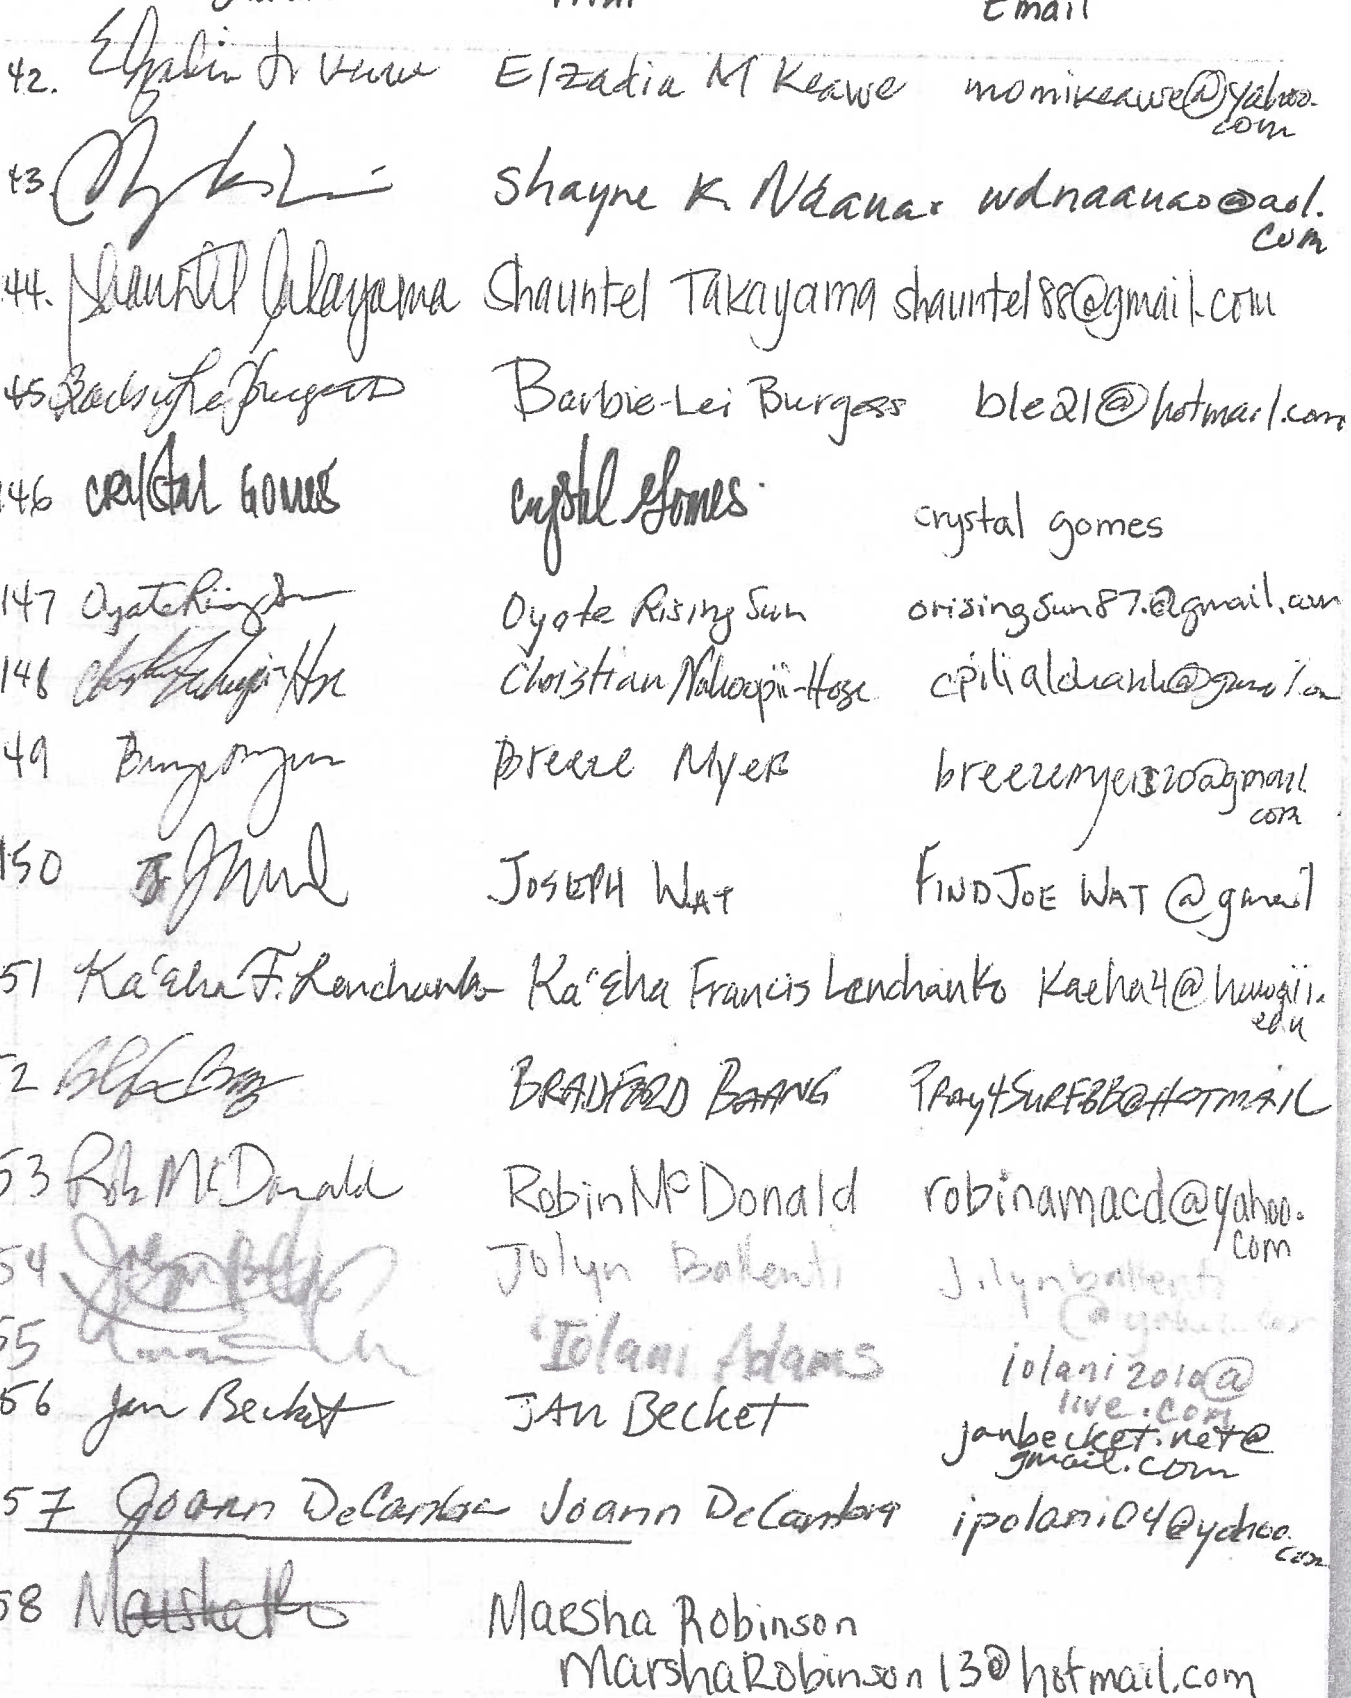 Email
42. Elzadia M Keawe momikeawe@yahoo.
com
43 Shayne K. Naanao wdnaanao@aol.
com
44. Shauntel Takayama Shauntel Takayama shauntel88@gmail.com
45 Barbie-Lei Burgess ble21@hotmail.com
146 Crystal Gomes Crystal Gomes crystal gomes
147 Oyate Rising Sun orisingsun87.@gmail.com
148 Christian Nahoopii-Hose
49 Breeze Myers breezemyers20@gmail
com
150 JOSEPH WAT FINDJOE WAT @gmail
51 Ka'eha F. Lenchanko Ka'eha Francis Lenchanko Kaeha4@hawaii.
edu
2 BRADFORD BAANG PRAY4SURFBB@HOTMAIL
53 Rob McDonald Robin McDonald robinamacd@yahoo.
com
54 Jolyn Ballenti
55 'Iolani Adams iolani2010@
live.com
56 Jan Becket JAN BECKET janbecket.net@
gmail.com
57 Joann DeCambra Joann DeCambra ipolani04@yahoo.
com
58 Marsha Robinson
MarshaRobinson13@hotmail.com